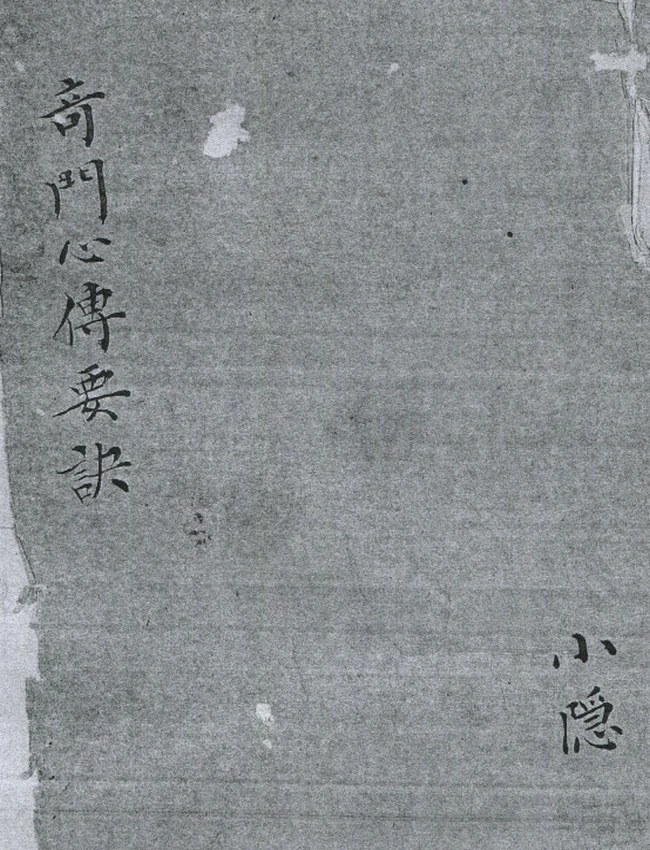 奇門心傳要訣
小隱